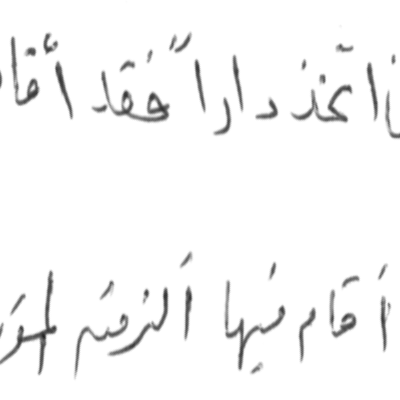 اتخذ داراً فقد أقا
أقام فيها الزمنه المو